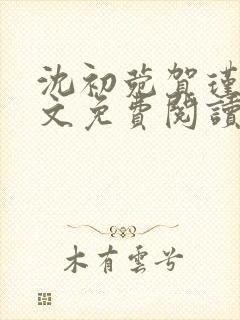 沈初菀贺瑾
文免費閱讀
木有雲兮